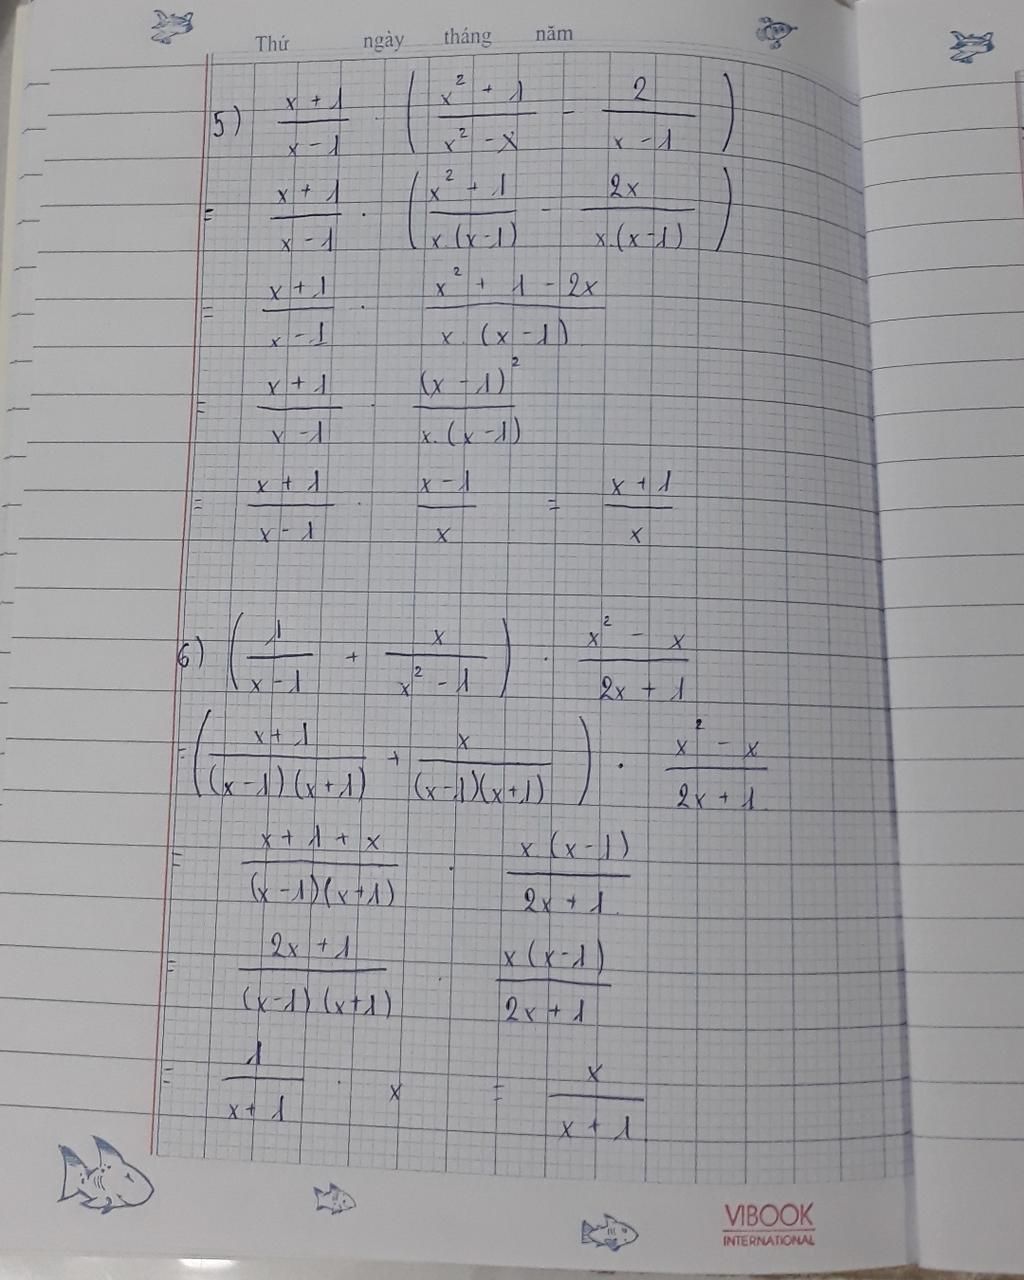 Thứ ngày tháng năm
5) (x + 1)/(x - 1) · ((x² + 1)/(x² - x) - 2/(x - 1))
= (x + 1)/(x - 1) · ((x² + 1)/(x.(x-1)) - 2x/(x.(x-1)))
= (x + 1)/(x - 1) · (x² + 1 - 2x)/(x.(x - 1))
= (x + 1)/(x - 1) · (x - 1)²/(x.(x - 1))
= (x + 1)/(x - 1) · (x - 1)/x = (x + 1)/x
6) (1/(x - 1) + x/(x² - 1)) · (x² - x)/(2x + 1)
= ((x + 1)/((x-1)(x+1)) + x/((x-1)(x+1))) · (x² - x)/(2x + 1)
= (x + 1 + x)/((x-1)(x+1)) · x(x-1)/(2x + 1)
= (2x + 1)/((x-1)(x+1)) · x(x-1)/(2x + 1)
= 1/(x + 1) · x = x/(x + 1)
VIBOOK
INTERNATIONAL